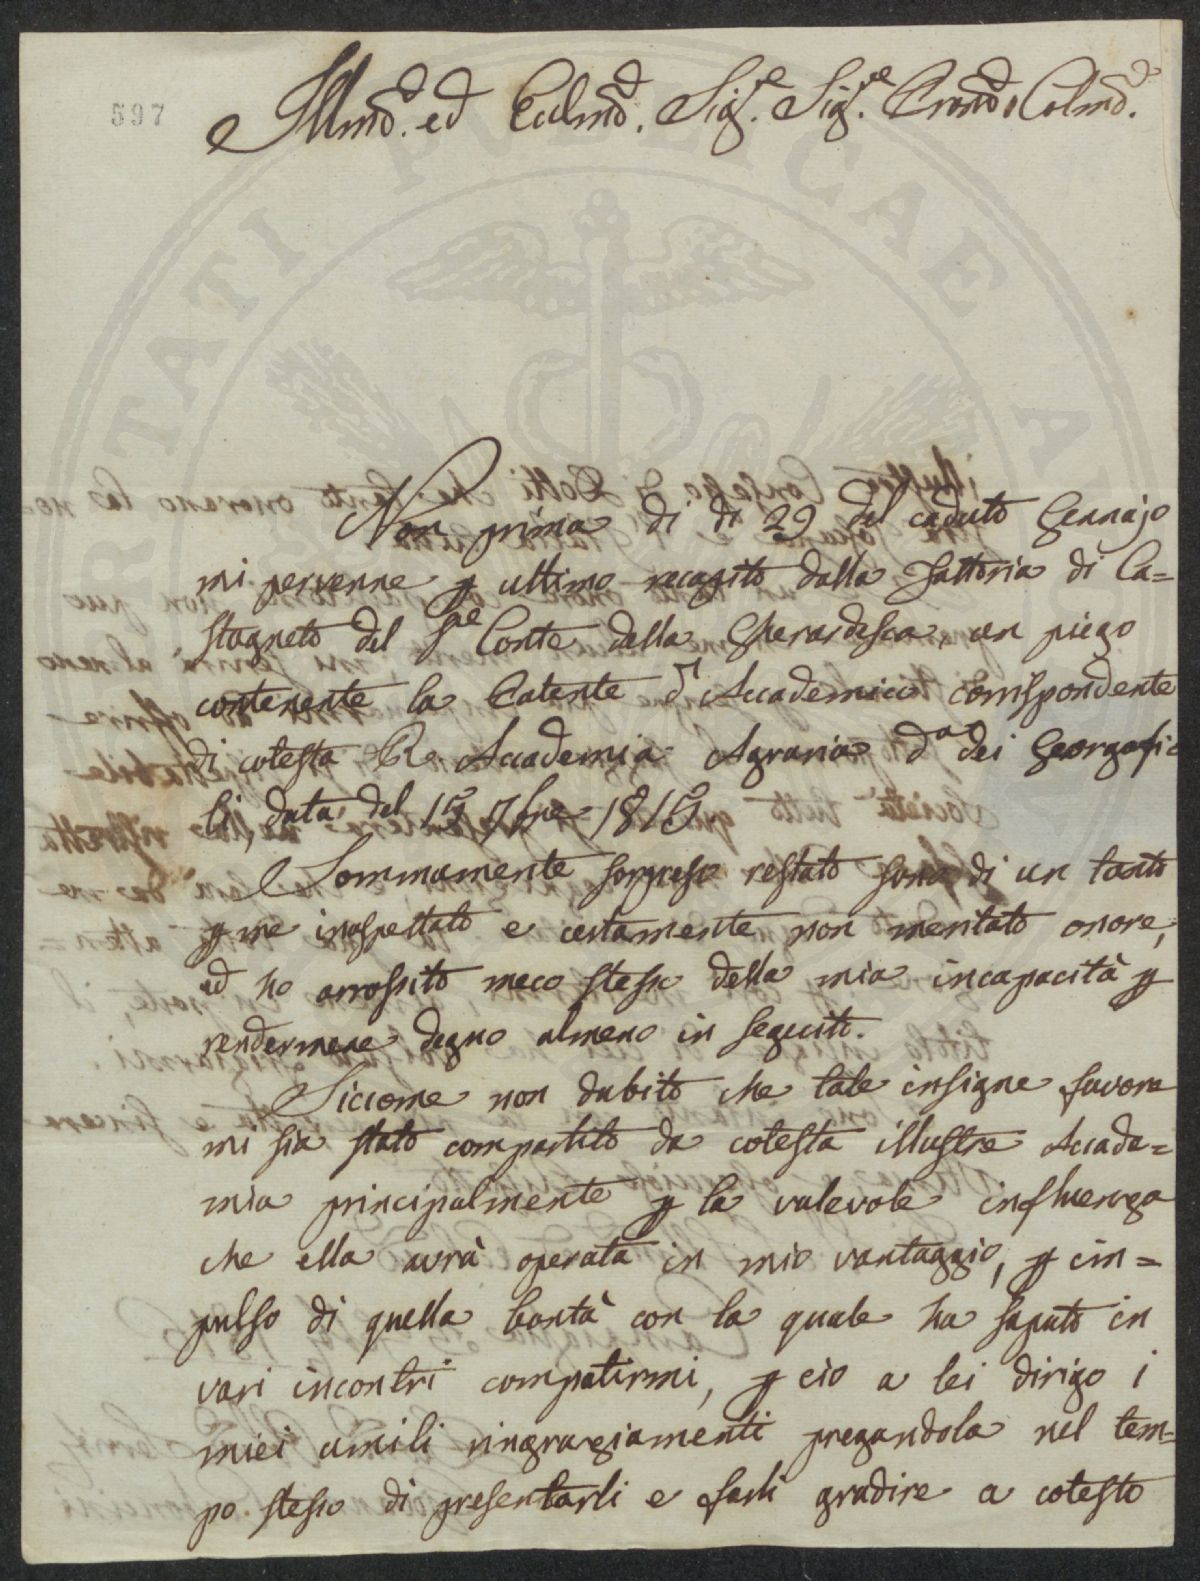 597
Illmo. ed Ecclmo. Sigre. Sigre. Pron. Colmo.
Non prima di di 29 del caduto Gennajo
mi pervenne p ultimo recapito dalla Fattoria di Ca=
stagneto del Sre Conte della Gherardesca, un piego
contenente la Patente d'Accademico corrispondente
di cotesta Re. Accademia Agraria da dei Georgofi
li, data del 15 7bre 1815.
Sommamente sorpreso restato sono di un tanto
p me inaspettato e certamente non meritato onore,
ed ho arrossito meco stesso della mia incapacità p
rendermene degno almeno in seguito.
Siccome non dubito che tale insigne favore
mi sia stato compartito da cotesta illustre Accade=
mia principalmente p la valevole influenza
che ella avrà operata in mio vantaggio, p im=
pulso di quella bontà con la quale ha saputo in
vari incontri compatirmi, p cio a lei dirigo i
miei umili ringraziamenti pregandola nel tem=
po stesso di presentarli e farli gradire a cotesto